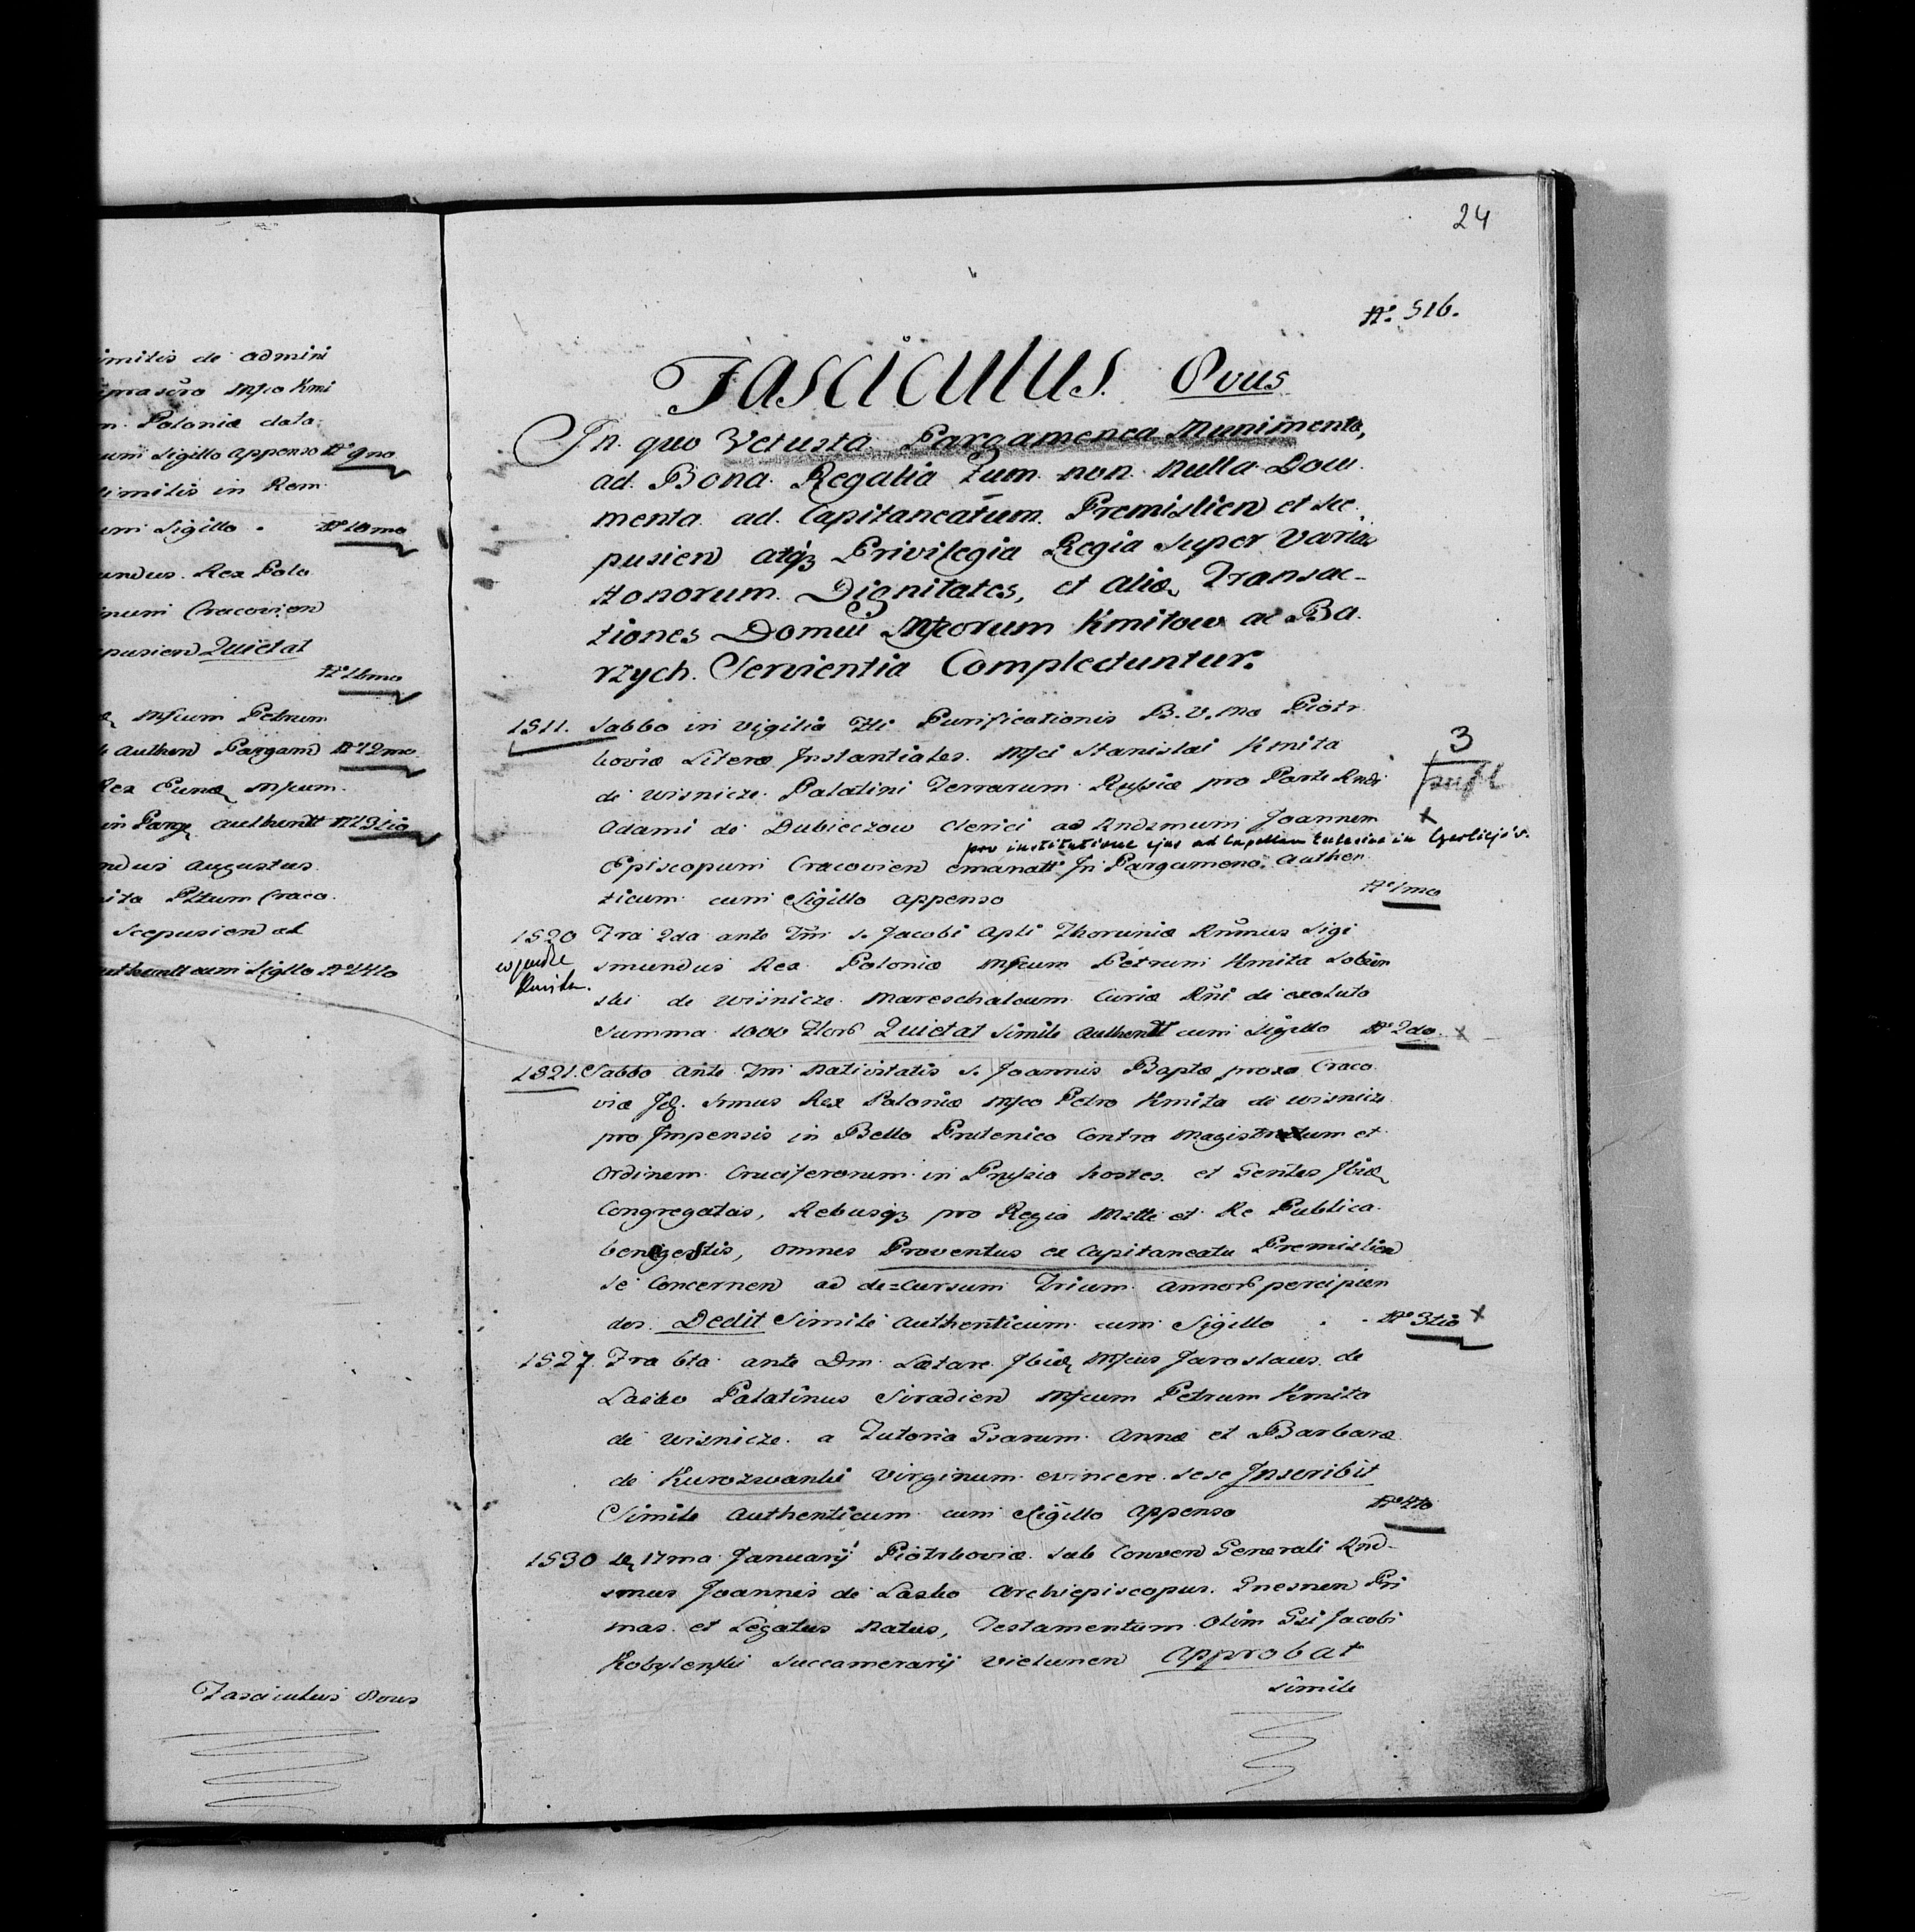 imilis de admini
Mfco Kmi
Poloniæ data
um Sigillo appenso No 9no
similis in Rem
um Sigillo. No 10mo
undus. Rex Polo
inum Cracovien
pusien Quietat
No 11mo
Mfcum Petrum
Authen Pargam No 12mo
Rex Mfcum.
in Parg authentt No 13tio
ndus Augustus
ita Pttum Craco.
Scepusien ad
authentt cum Sigllo No 14to
Fasciculus 8vus
24
No. 516.
Fasciculus. 8vus
In quo Vetusta Pargamenea Munimenta,
ad. Bona. Regalia tum non. nulla. Docu.
menta. ad. Capitaneatum. Premislien et Sce.
pusien atq3 Privilegia Regia super varias
Honorum. Dignitates, et aliæ Transac-
tiones Domui Mfcorum Kmitow ac Ba.
rzych. Servientia Complectuntur.
1511. Sabbo in vigilia Fti Purificationis B.V.Ma Piotr.
koviæ Literæ Instantiales. Mfci Stanislai Kmita
de Wisnicze. Palatini Terrarum Russiæ pro Parte Rndi
Adami de Dubieczow Clerici ad Rndsmum Joannem
pro institutione ejus ad Capellam Ecclesiae in
Episcopum Cracovien emanatt In Pargameno. Authen
ticum cum Sigillo appenso No 1mo
3
x
1520 Fra 2da ante Ftm S. Jacobi Apli Thoruniæ Rnmus Sigi
smundus Rex Poloniæ Mfcum Petrum Kmita Sobien
ski de Wisnicze. Mareschalcum Curiæ Rni de exoluto
Summa 1000 Flor Quietat Simile Authentt cum Sigillo No 2do. x
1521. Sabbo ante Ftm Nativitatis S. Joannis Baptæ proxo Craco
viæ Id. Srmus Rex Poloniæ Mfco Petro Kmita de Wisnicze
pro Impensis in Bello Prutenico Contra Magistratum et
Ordinem Cruciferorum in Prussia hostes. et Gentes Ibid
Congregatas, Rebusq3 pro Regia Mtte et Re Publica
benegestis, omnes Proventus ex Capitaneatu Premislien
se Concernen ad de=cursum Trium Annor percipien
dos. Dedit Simile Authenticum cum Sigillo . . No 3tio x
1527. Fra 6ta ante Dm. Lætare Ibid Mfcus Jaroslaus de
Lasko Palatinus Siradien Mfcum Petrum Kmita
de Wisnicze. a Tutoria Gsarum Annæ et Barbaræ
de Kurozwanki Virginum evincere sese Inscribit
Simile Authenticum cum Sigillo appenso No 4to
1530 D 17ma Januarij Piotrkoviæ sub Conven Generali Rnd-
smus Joannis de Lasko Archiepiscopus. Gnesnen Pri
mas et Legatus Natus, Testamentum olim Gsi Jacobi
Kobylenski Succamerarij Vielunen Approbat
simile